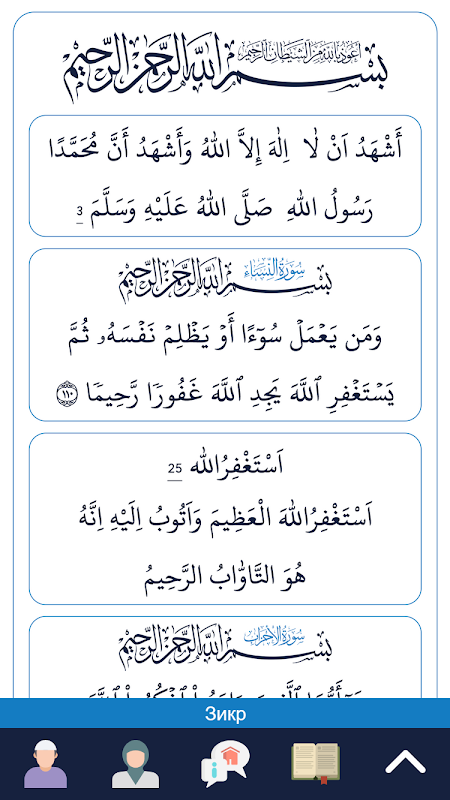 اعوذ بالله من الشيطان الرجيم
بسم الله الرحمن الرحيم
أَشْهَدُ اَنْ لٰا اِلٰهَ إِلاَّ اللهُ وَأَشْهَدُ أَنَّ مُحَمَّدًا
رَسُولُ اللهِ صَلَّى اللهُ عَلَيْهِ وَسَلَّمَ 3
سورة النساء
بسم الله الرحمن الرحيم
وَمَن يَعْمَلْ سُوٓءًا أَوْ يَظْلِمْ نَفْسَهُۥ ثُمَّ
يَسْتَغْفِرِ ٱللَّهَ يَجِدِ ٱللَّهَ غَفُورًا رَّحِيمًا ١١٠
اَسْتَغْفِرُالله 25
اَسْتَغْفِرُاللهَ الْعَظِيمَ وَاَتُوبُ اِلَيْهِ اِنَّهُ
هُوَ التَّاوَّابُ الرَّحِيمُ
سورة الأحزاب
بسم الله الرحمن الرحيم
Зикр